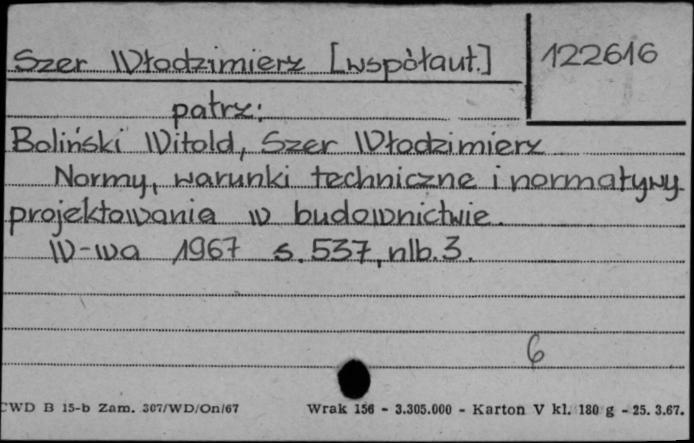 Szer Włodzimierz [współaut.]
122616
patrz:
Boliński Witold, Szer Włodzimierz
Normy, warunki techniczne i normatywy
projektowania w budownictwie.
W-wa 1967 s. 537, nlb. 3.
6
CWD B 15-b Zam. 307/WD/On/67
Wrak 156 - 3.305.000 - Karton V kl. 180 g - 25. 3.67.